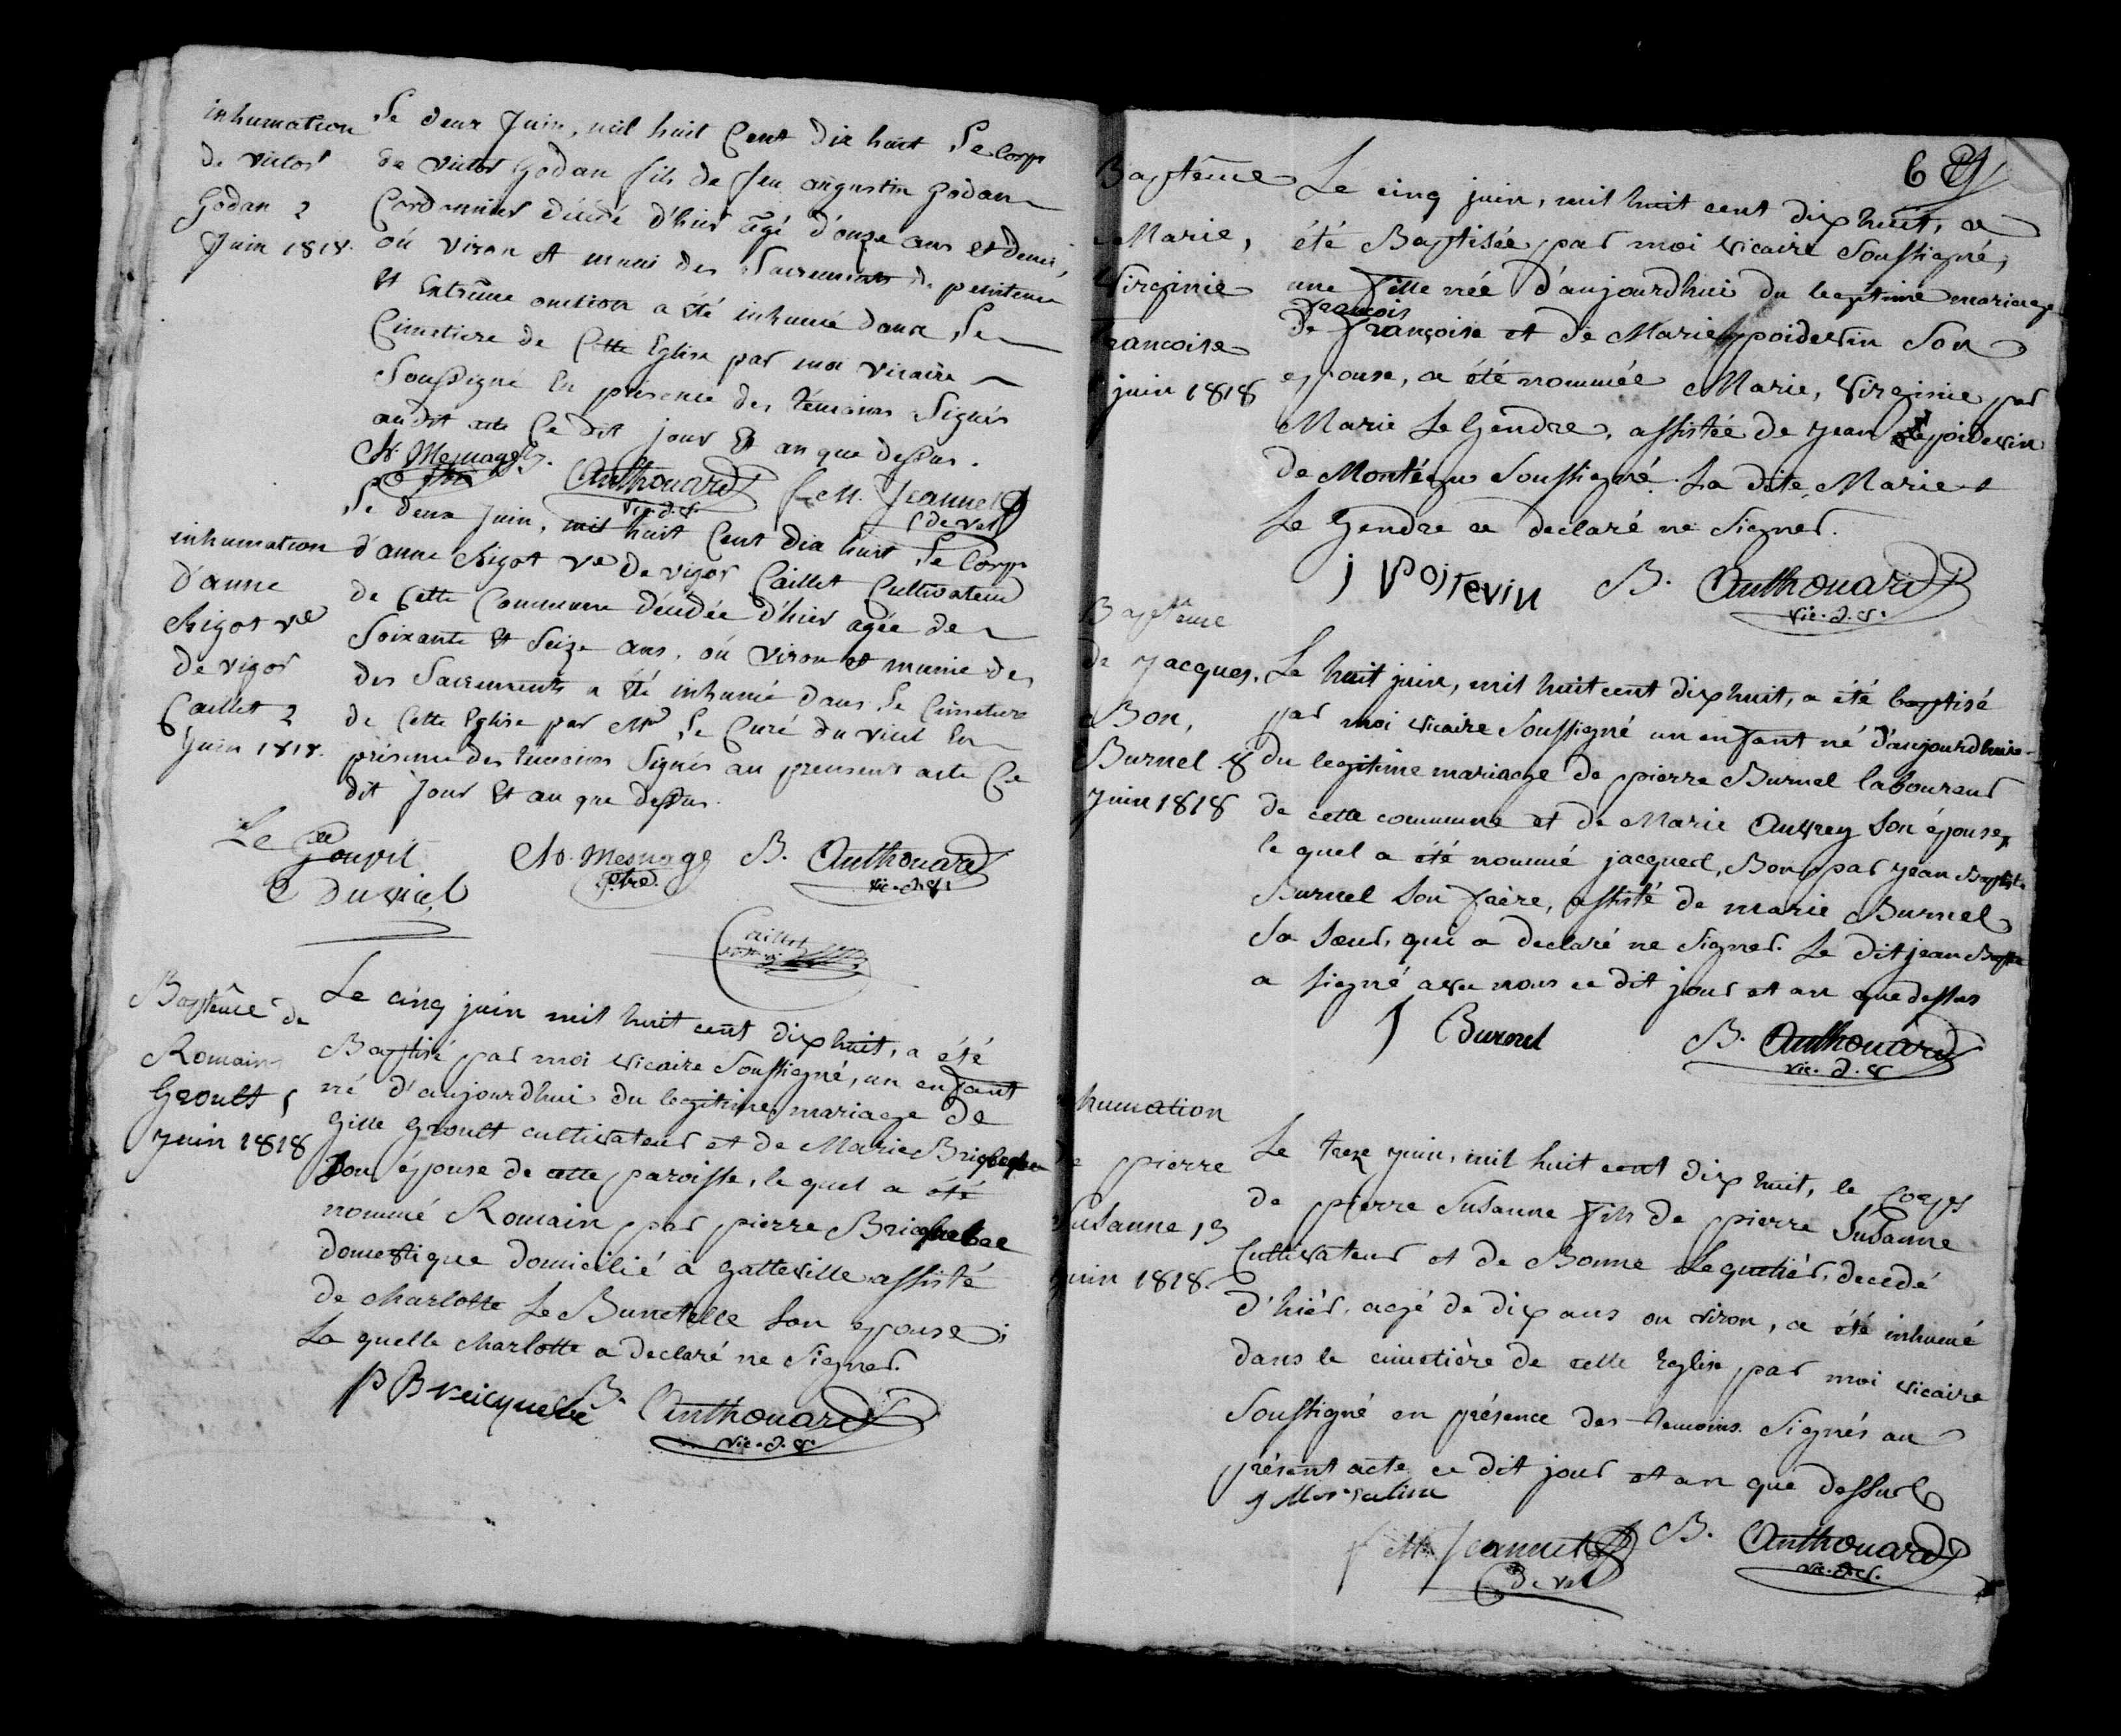 inhumation
de victor
Godan 2
Juin 1818.
Le deux Juin, mil huit Cent dix huit Le Corps
de victor Godan fils de feu augustin Godan
Cordonnier décédé d'hier âgé d'onze ans et demi,
où viron et muni des Sacrements de penitence
Et Extrême onction a été inhumé dans Le
Cimetiere de Cette Eglise par moi vicaire
Soussigné En présence des témoins Signés
audit acte Ce dit jour Et an que dessus.
Mesnage
Anthouard
vic. d. v.
f. M. Jeannet
C de val
inhumation
d'anne
Rigot ve
de vigor
Caillet 2
Juin 1818.
Le deux Juin, mil huit Cent dix huit Le Corps
d'anne Rigot ve de vigor Caillet Cultivateur
de Cette Commune décédée d'hier agée de
Soixante Et Seize ans, où viron et munie des
des Sacrements a été inhumé dans Le Cimetiere
de Cette Eglise par Mr Le Curé du vicel En
présence des temoins Signés au present acte Ce
dit Jour Et an que dessus.
Le
C Du vicel
Mesnage
ptre
B. Anthouard
vic. d. v.
Caillet
Baptême de
Romain
Groult 5
Juin 1818
Le cinq juin mil huit cent dix huit, a été
Baptisé par moi vicaire Soussigné, un enfant
né d'aujourdhui du legitime mariage de
Gille Groult cultivateur et de Marie Briquebec
Son épouse de cette paroisse, le quel a été
nommé Romain par pierre Bricquebec
domestique domicilié à gatteville assisté
de charlotte Le Bunetelle Son epouse;
La quelle charlotte a declaré ne Signer.
P Breicquebé
B. Anthouard
vic. d. v.
Baptême
Marie,
Virginie
francoise
juin 1818
Le cinq juin, mil huit cent dix huit, a
été Baptisée par moi vicaire Soussigné,
une fille née d'aujourdhui du legitime mariage
françois
de françoise et de Marie poidevin Son
epouse, a été nommée Marie, Virginie par
Marie Le Gendre, assistée de jean poidevin
de Montégu Soussigné. La dite, Marie
Le Gendre a declaré ne Signer.
j Poitevin
B. Anthouard
vic. d. v.
Baptême
de jacques,
Bon,
Burnel 8
juin 1818
Le huit juin, mil huit cent dix huit, a été baptisé
par moi vicaire Soussigné un enfant né d'aujourdhui
du legitime mariage de pierre Burnel laboureur
de cette commune et de Marie Auvrey Son épouse,
le quel a été nommé jacques, Bon, par jean Baptiste
Burnel Son frère, assisté de marie Burnel
Sa Sœur, qui a declaré ne Signer. Le dit jean Bapte
a signé avec nous ce dit jour et an que dessus
J Burnel
B. Anthouard
vic. d. v
humation
de pierre
Susanne 13
juin 1818.
Le treze juin, mil huit cent dix huit, le corps
de pierre Susanne fils de pierre Susanne
Cultivateur et de Bonne Lequetier, decedé
d'hier, agé de dix ans ou viron, a été inhumé
dans le cimetière de cette Eglise par moi vicaire
Soussigné en présence des temoins Signés au
présent acte ce dit jour et an que dessus
f M Jeannet
C de val
B. Anthouard
vic. d. v.